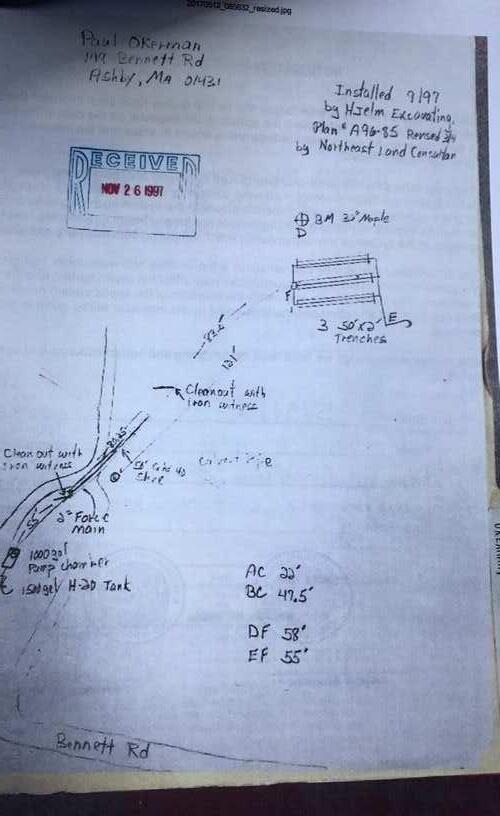 20170512_085632_resized.jpg
Paul Okerman
Bennett Rd
Ashby, MA 01431
Installed 9/97
by Hjelm Excavating
Plan # A96-85 Revised
by Northeast Land Consultan
RECEIVED
NOV 26 1997
BM 32" Maple
D
F
E
3 50'x2'
Trenches
121'
Cleanout with
iron witness
Clean out with
iron witness
Culvert Pipe
2" Force
Main
55'
1000 gal
Pump chamber
1500 gal H-20 Tank
C
AC 22'
BC 47.5'
DF 58'
EF 55'
Bennett Rd